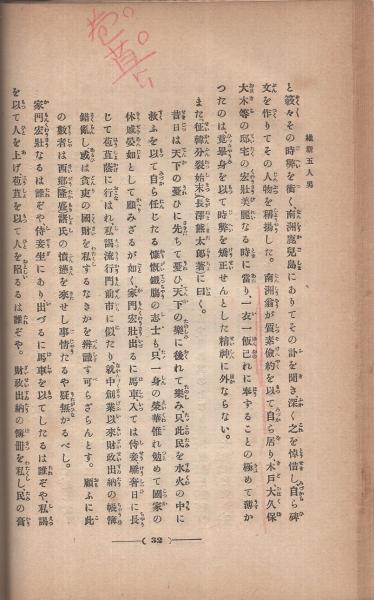 苞苴い
維新五人男
と縷々その時弊を衝く南洲鹿兒島にありてその訃を聞き深く之を悼惜し自ら碑
文を作りてその人物を稱揚した。南洲翁が質素儉約を以て自ら居り木戸大久保
大木等の邸宅の宏壯美麗なる時に當り、一衣一飯己れに奉することの極めて薄か
つたのは、竟畢身を以て時弊を矯正せんとした精神に外ならない。
また、征韓分裂始末(長澤熊太郎著)に曰く。
昔日は天下の憂ひに先ちて憂ひ天下の樂に後れて樂み只此民を水火の中に
救ふを以て自ら任じたる慷慨鐵膓の志士も只一身の榮華惟れ勉めて國家の
休戚晏如として顧みざるが如く家門宏壯出るに馬車入ては侍妾驕奢日に長
じて苞苴蔭に行はれ私謁流行門前市に似たり就中創業以來財政出納の帳簿
錯亂し或は貢衷の國財を私するなきかを辨識す可らざらんとす。顧ふに此
の數者は西鄕隆盛諸氏の憤懣を來せし事情たるや疑無かるべし。
家門宏壯なるは誰ぞや侍妾坐にあり出づるに馬車を以てしたるは誰ぞや、私謁
を以て人を上げ苞苴を以て人を用ゐるは誰ぞや。財政出納の簿冊を私し民の膏
32